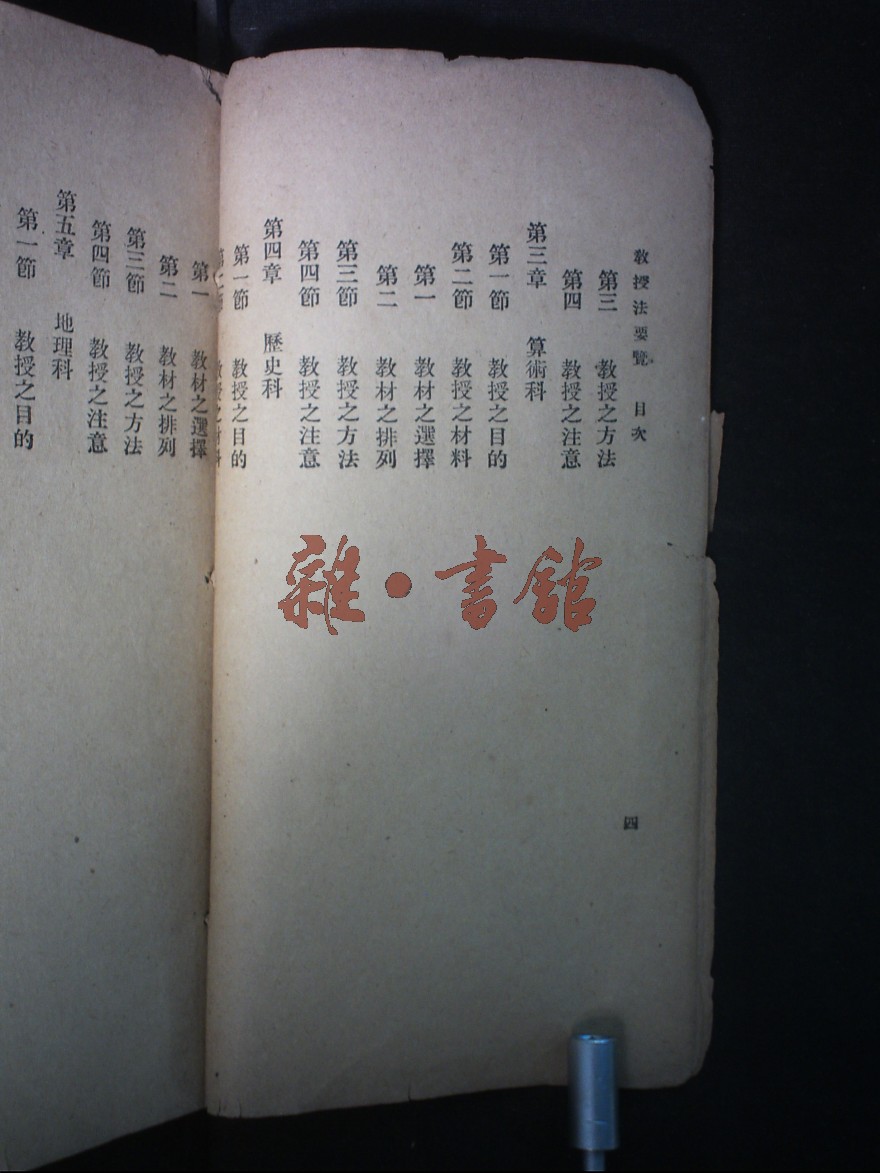 教授法要覽 目次
第三 教授之方法
第四 教授之注意
第三章 算術科
第一節 教授之目的
第二節 教授之材料
第一 教材之選擇
第二 教材之排列
第三節 教授之方法
第四節 教授之注意
第四章 歷史科
第一節 教授之目的
第二節 教授之材料
第一 教材之選擇
第二 教材之排列
第三節 教授之方法
第四節 教授之注意
第五章 地理科
第一節 教授之目的
四
雜·書館